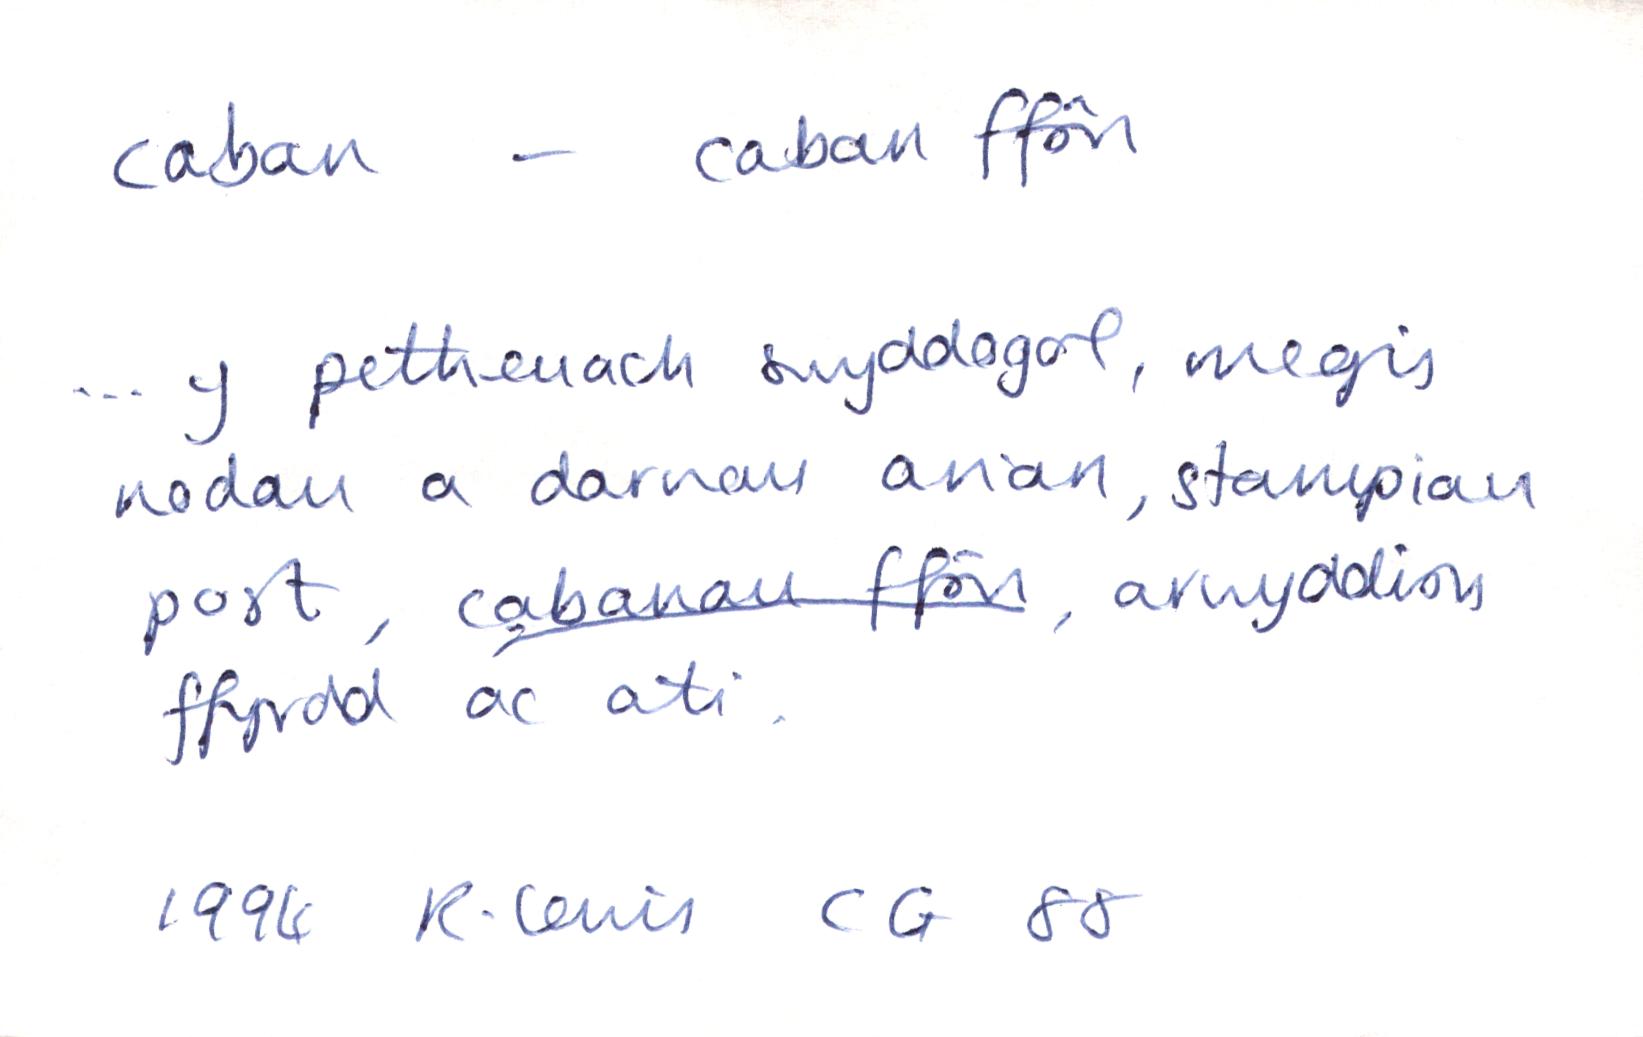 caban – caban ffôn
... y petheuach swyddogol, megis
nodau a darnau arian, stampiau
post, cabanau ffôn, arwyddion
ffyrdd ac ati.
1994 R. Lewis CG 88